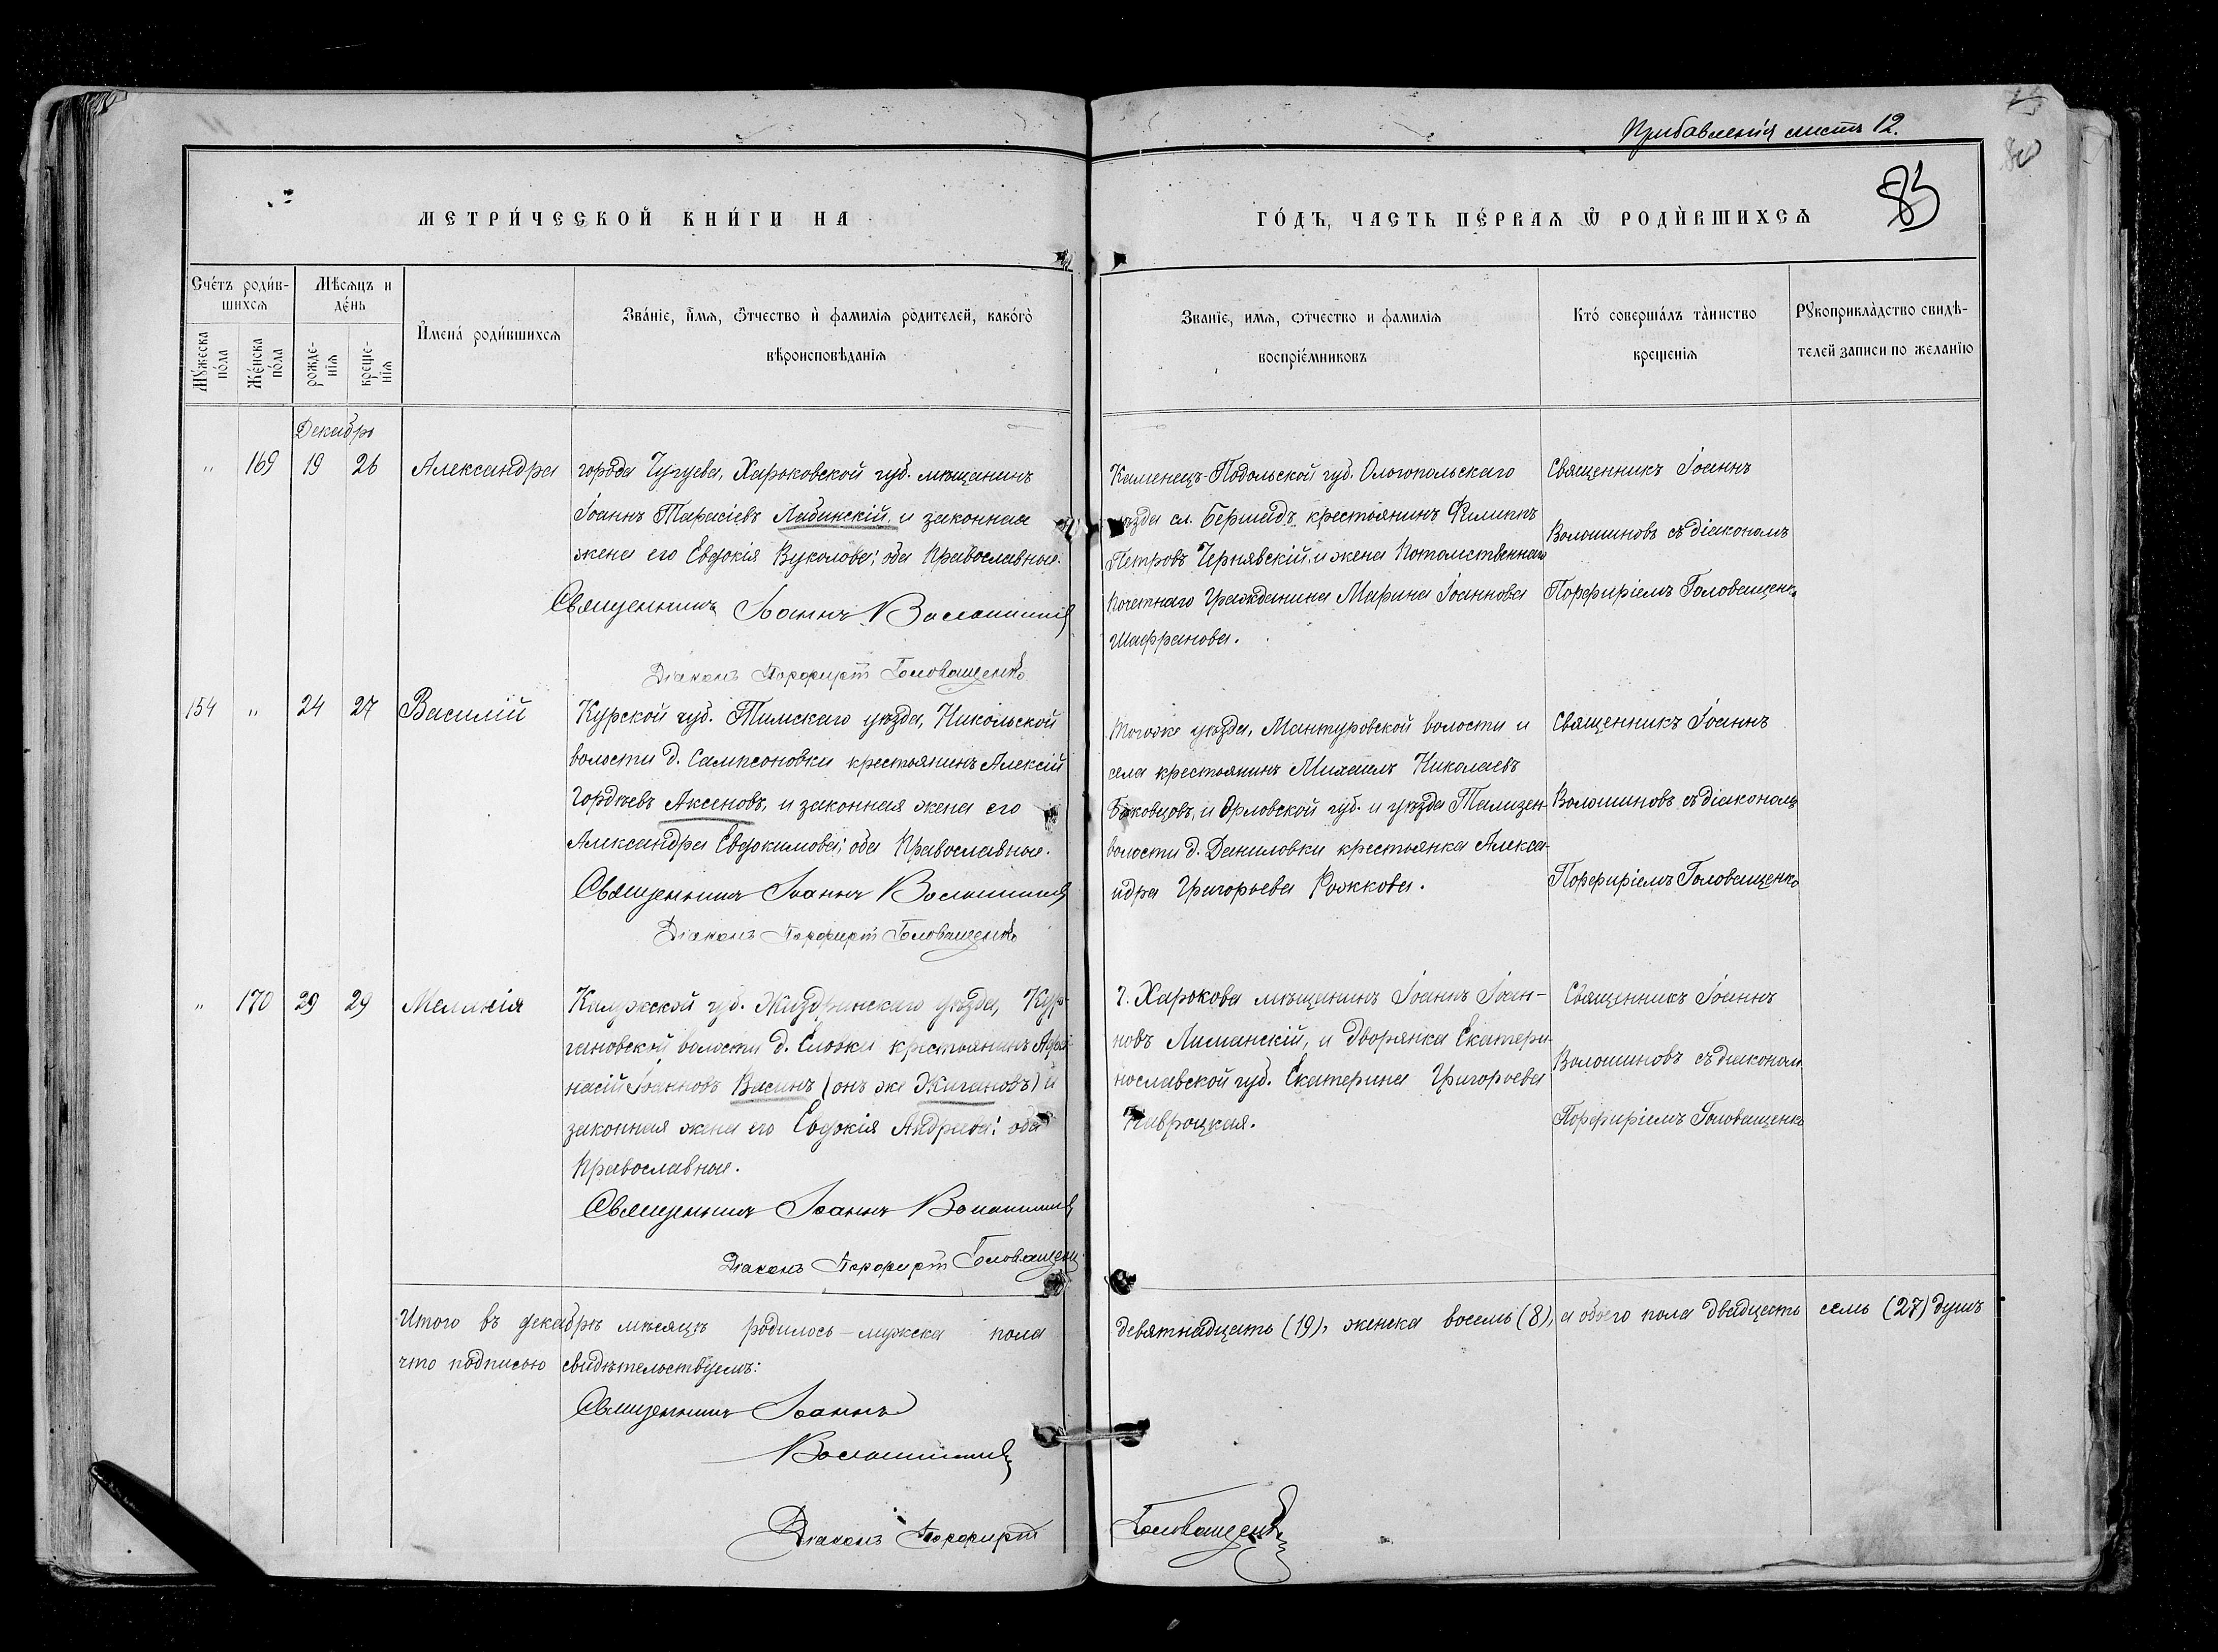 Прибавленія листъ 12.
83
МЕТРИ́ЧЕСКОЙ КНИ́ГИ НА
ГО́ДЪ, ЧАСТЬ ПЕ́РВАѦ Ѿ РОДИ́ВШИХСѦ
Сче́тъ роди́в-
шихсѧ
Мꙋ́жеска по́ла
Же́нска по́ла
Мѣ́сѧцъ и
де́нь
рожде-
нїѧ
креще-
нїѧ
И҆мена̀ роди́вшихсѧ
Зва́нїе, и҆́мѧ, ѻ҆́тчество и҆ фами́лїѧ роди́телей, како́гѡ
вѣроисповѣ́данїѧ
Званїе, имѧ, ѻтчество и фамилїѧ
воспрїе́мниковъ
Кто́ соверша́лъ та́инство
креще́нїѧ
Рꙋкоприкла́дство свидѣ́-
телей записи по желанїю
Декабрь
" 169 19 26 Александра
города Чугуева, Харьковской губ. мѣщанинъ
Іоаннъ Тарасіевъ Лабинскій, и законная
жена его Евдокія Вуколова; оба Православные.
Священникъ Іоаннъ Волошиновъ
Діаконъ Порфирій Головащенко
Каменецъ-Подольской губ. Ольгопольскаго
уѣзда сл. Бершадъ крестьянинъ Филиппъ
Петровъ Чернявскій, и жена Потомственнаго
Почетнаго Гражданина Марина Іоаннова
Шафранова.
Священникъ Іоаннъ
Волошиновъ съ діакономъ
Порфиріемъ Головащенко
154 " 24 27 Василій
Курской губ. Тимскаго уѣзда, Никольской
волости д. Сампсоновки крестьянинъ Алексій
Гордѣевъ Аксеновъ, и законная жена его
Александра Евдокимова; оба Православные.
Священникъ Іоаннъ Волошиновъ
Діаконъ Порфирій Головащенко
Тогоже уѣзда, Мантуровской волости и
села крестьянинъ Михаилъ Николаевъ
Боковцовъ, и Орловской губ. и уѣзда Тализен.
волости д. Даниловки крестьянка Алекса-
ндра Григорьева Рожкова.
Священникъ Іоаннъ
Волошиновъ съ діакономъ
Порфиріемъ Головащенко
" 170 29 29 Меланія
Калужской губ. Жиздринскаго уѣзда, Кур-
гановской волости д. Еловки крестьянинъ Афа-
насій Іоанновъ Васинъ (онъ же Жигановъ) и
законная жена его Евдокія Андреева; оба
Православные.
Священникъ Іоаннъ Волошиновъ
Діаконъ Порфирій Головащенко
г. Харькова мѣщанинъ Іоаннъ Іоан-
новъ Лиманскій, и дворянка Екатери-
нославской губ. Екатерина Григорьева
Навроцкая.
Священникъ Іоаннъ
Волошиновъ съ діакономъ
Порфиріемъ Головащенко
Итого въ декабрѣ мѣсяцѣ родилось мужска пола девятнадцать (19), женска восемь (8), а обоего пола двадцать семь (27) душъ
что подписью свидѣтельствуемъ:
Священникъ Іоаннъ
Волошиновъ
Діаконъ Порфирій Головащенко